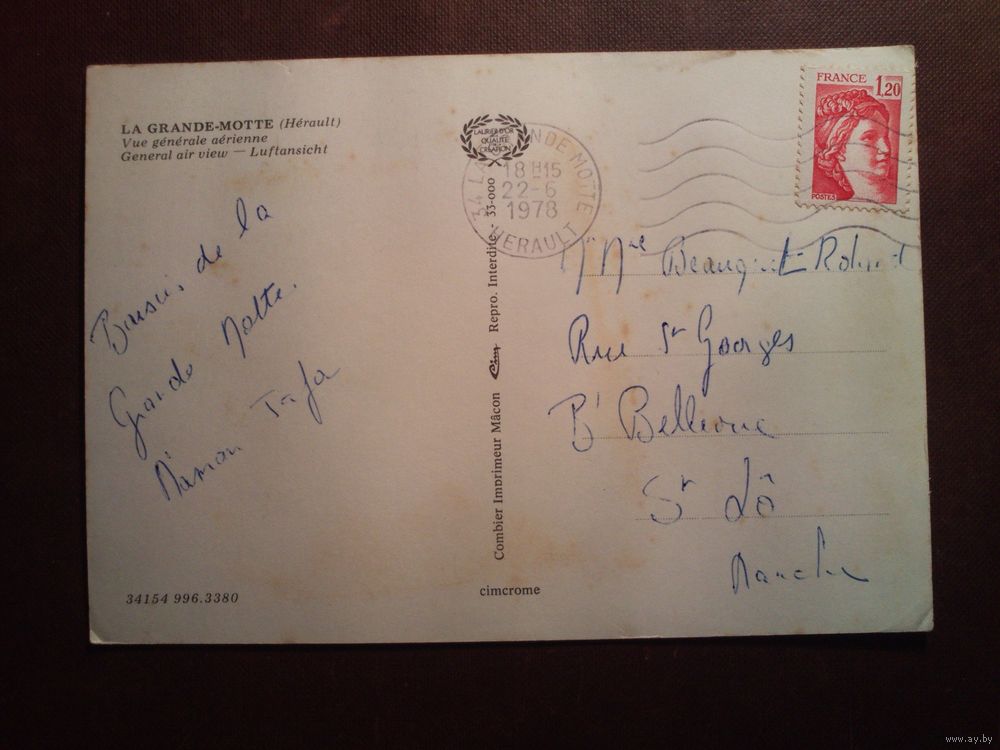 LA GRANDE-MOTTE (Hérault)
Vue générale aérienne
General air view — Luftansicht
de la
Grande Motte.
Maman
34154 996.3380
Combier Imprimeur Mâcon Cim Repro. Interdite - 33-000
cimcrome
LAURIER D'OR
QUALITÉ
CRÉATION
34 LA GRANDE MOTTE
18 H15
22-6
1978
HERAULT
FRANCE 1,20
POSTES
Rue St Georges
Bd Bellevue
St Lô
Manche
www.ay.by